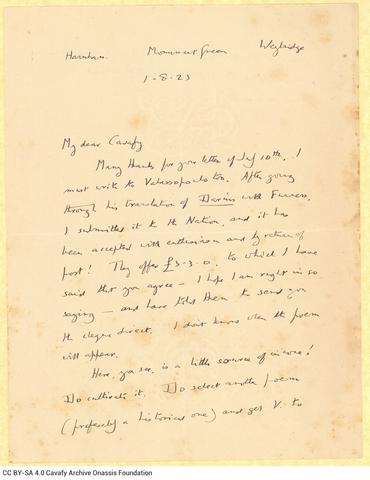 Harnham. Monument Green Weybridge
1-8-23
My dear Cavafy
Many thanks for your letter of July 10th. I
must write to Valassopoulo too. After going
through his translation of Darius with Furness,
I submitted it to the Nation, and it has
been accepted with enthusiasm and by return of
post! They offer £3-3-0, to which I have
said that you agree — I hope I am right in so
saying — and have told them to send you
the cheque direct. I don't know when the poem
will appear.
Here, you see, is a little source of income!
Do cultivate it. Do select another poem
(preferably a historical one) and get V. to
CC BY-SA 4.0 Cavafy Archive Onassis Foundation